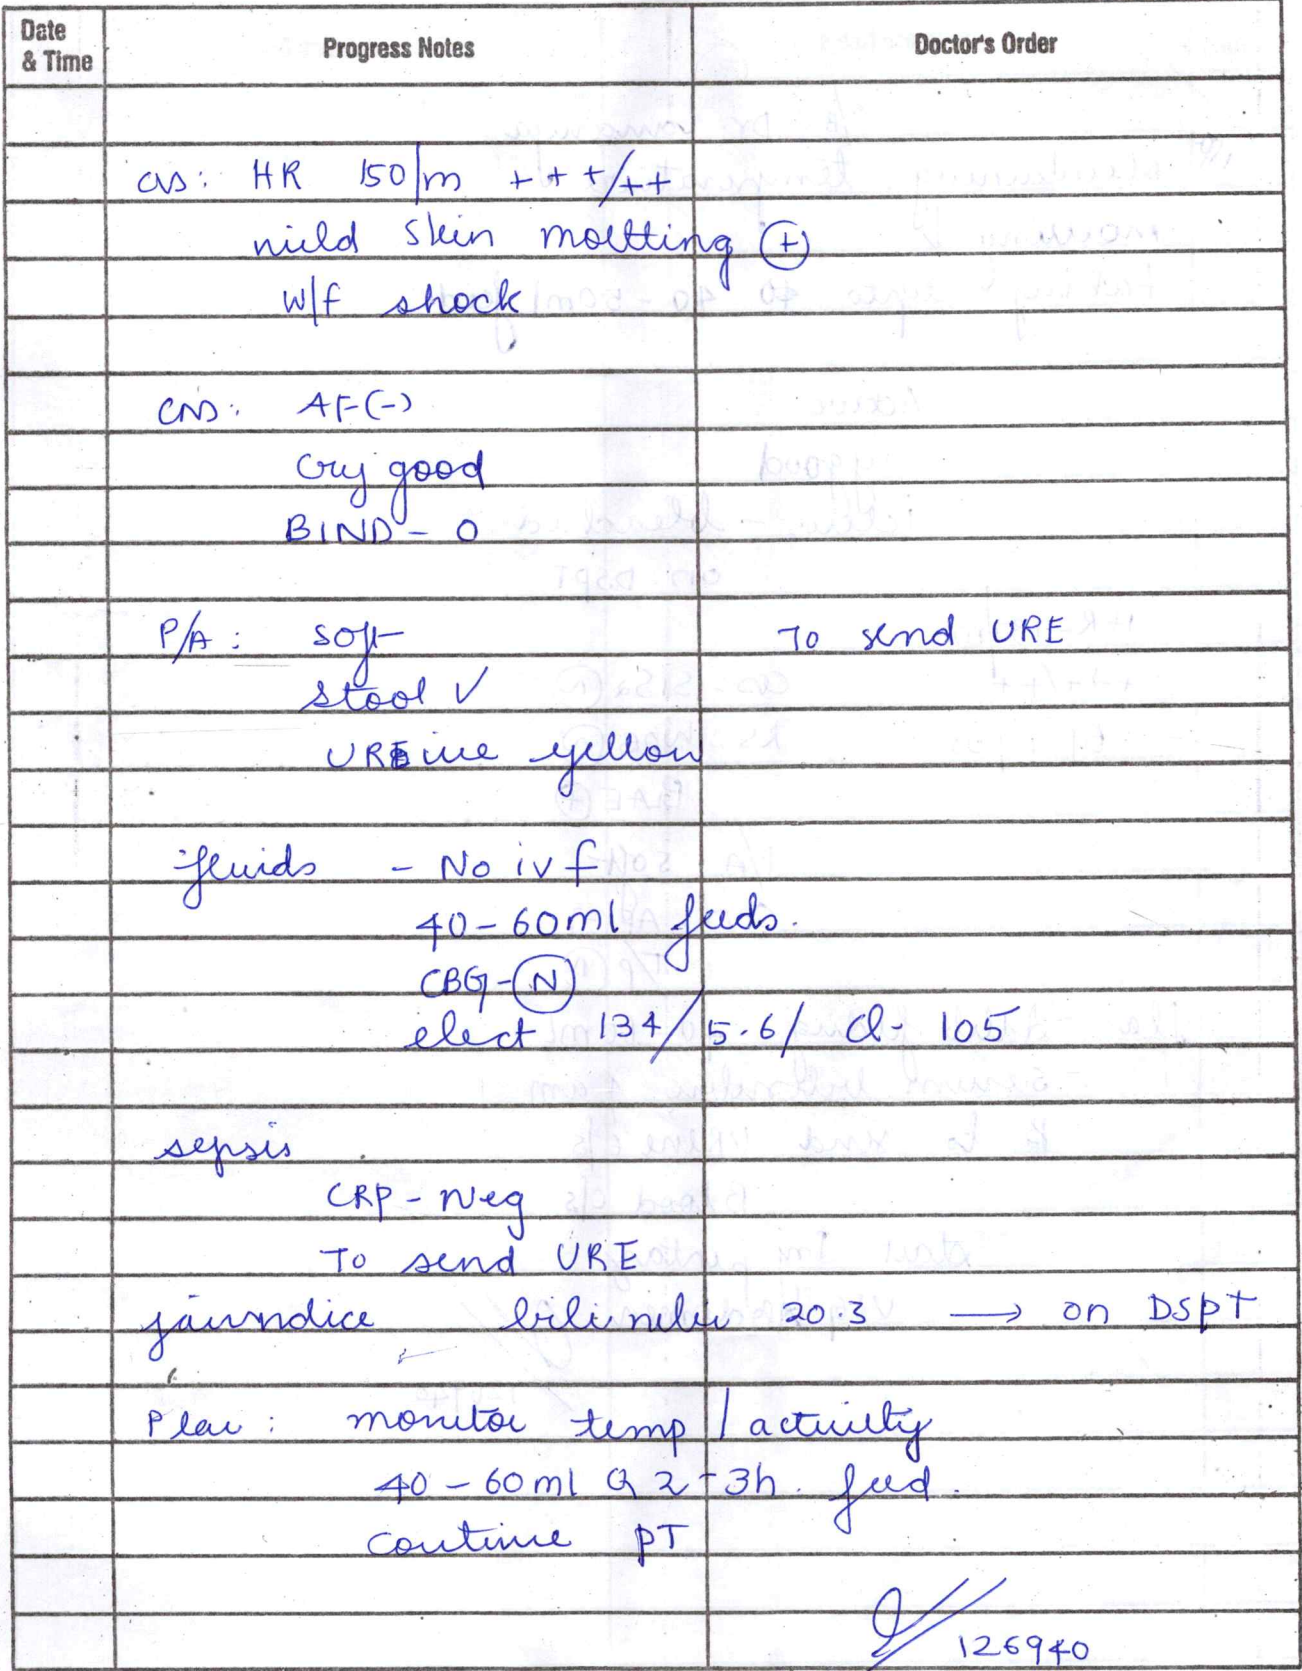 Date & Time Progress Notes Doctor's Order
CVS: HR 150/m +++/++
mild skin moltting (+)
w/f shock
CNS: AF(-)
Cry good
BIND - 0
P/A: soft To send URE
stool ✓
urine yellow
fluids - No ivf
40-60ml feeds.
CBG - (N)
elect 134/5.6/ Cl- 105
sepsis
CRP - Neg
To send URE
jaundice bilirubin 20.3 → on DSPT
Plan: monitor temp / activity
40-60ml Q 2-3h. feed.
continue PT
126940